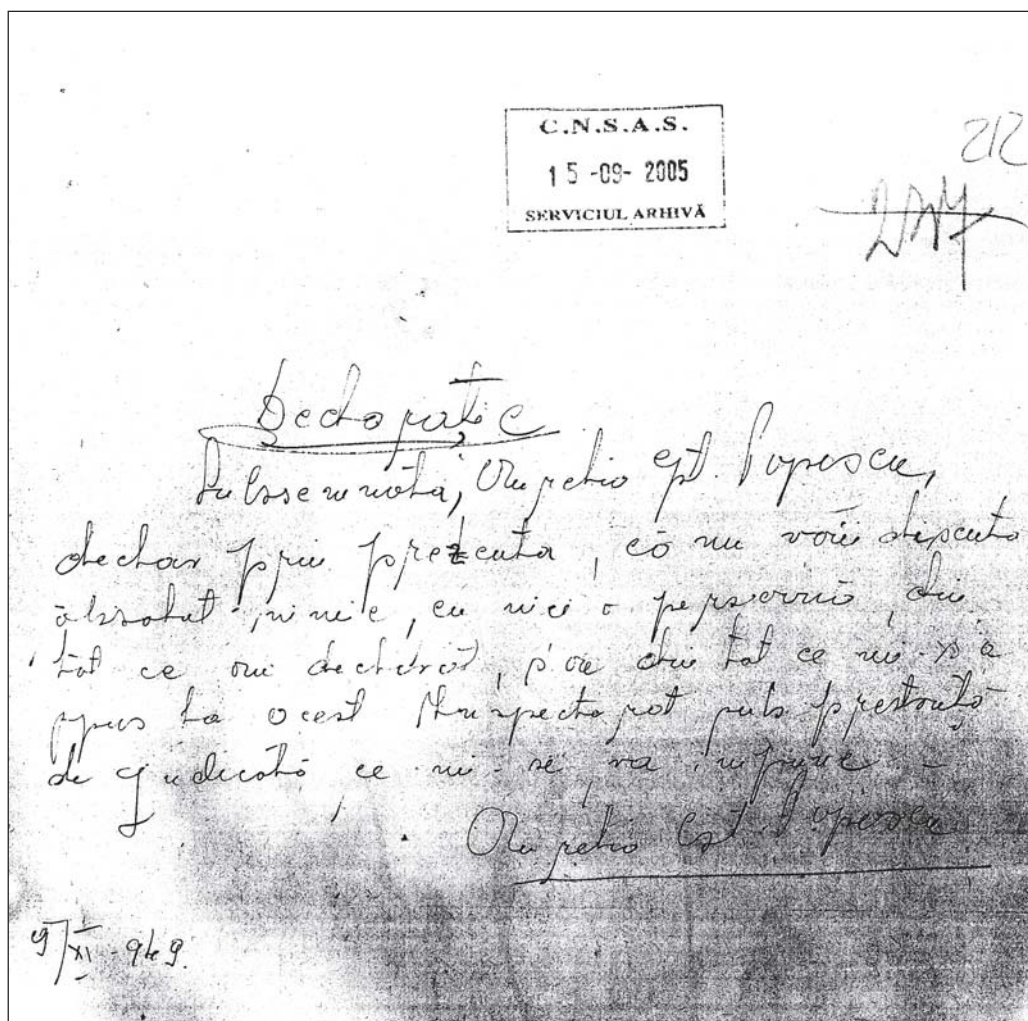 C.N.S.A.S.
15 -09- 2005
SERVICIUL ARHIVĂ
212
Declarație
Subsemnata, Aurelia Popescu,
declar prin prezenta, că nu voiu discuta
absolut nimic, cu nici o persoană, din
tot ce am declarat, sau din tot ce mi s'a
spus la acest Inspectorat sub
de judecată ce mi se va impune -
Aurelia Popescu
9/XI - 949.